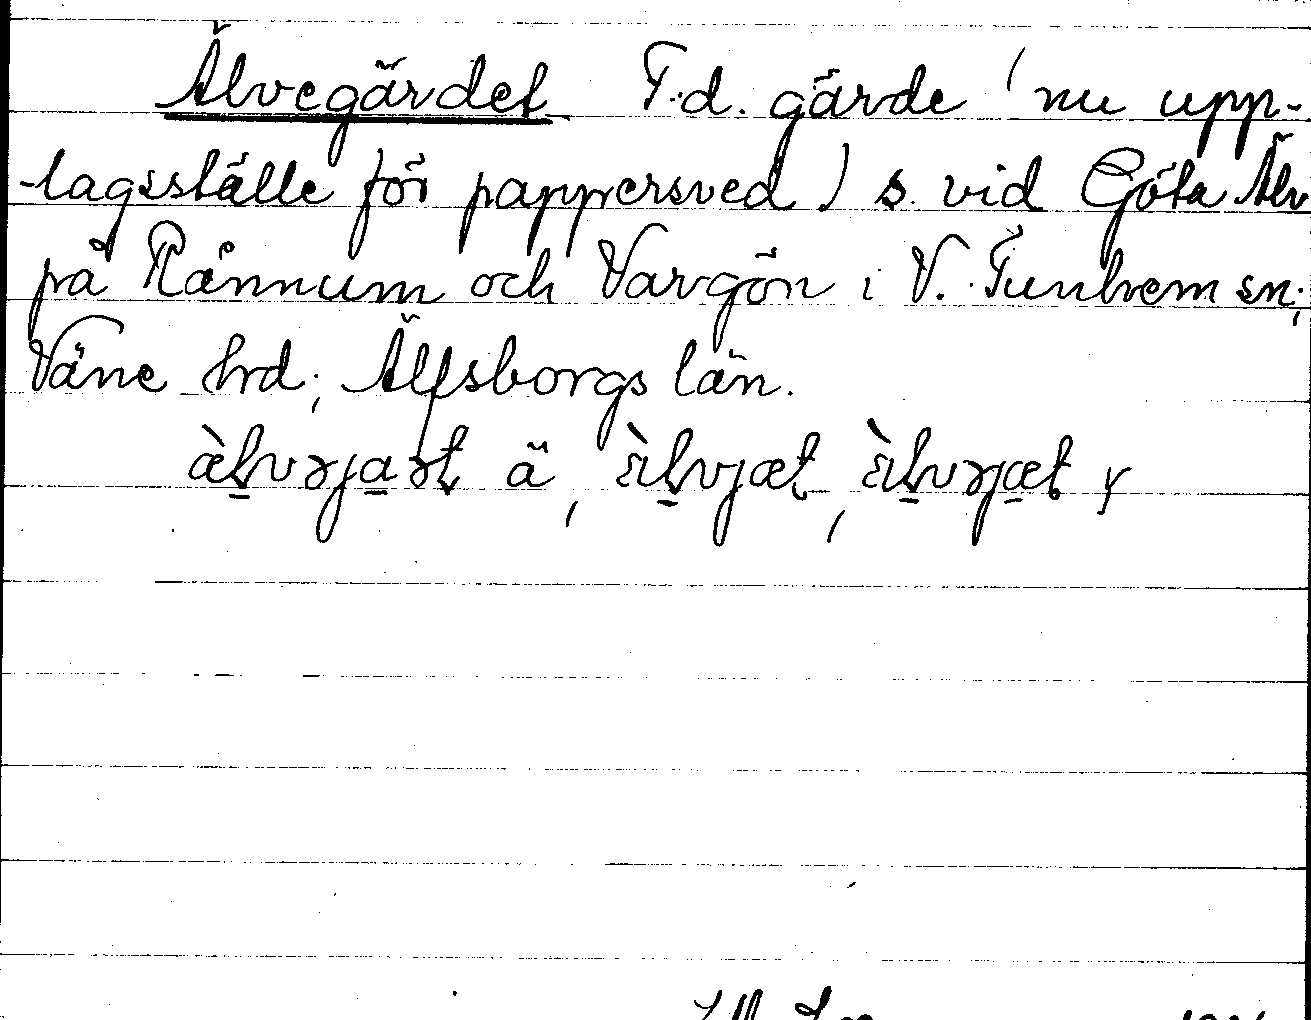 Älvegärdet F.d. gärde (nu upp-
lagsställe för pappersved) s. vid Göta Älv
på Rånnum och Vargön i V. Tunhem sn;
Väne hrd; Älfsborgs län.
ä, y